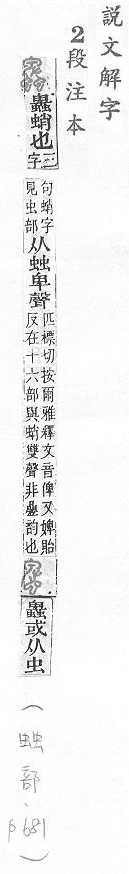 說文解字
2段注本
蛸也三字句蛸字見虫部从䖵卑聲匹標切按爾雅釋文音俾又婢貽反在十六部與蛸雙聲非曡韵也或从虫（䖵部、p681）